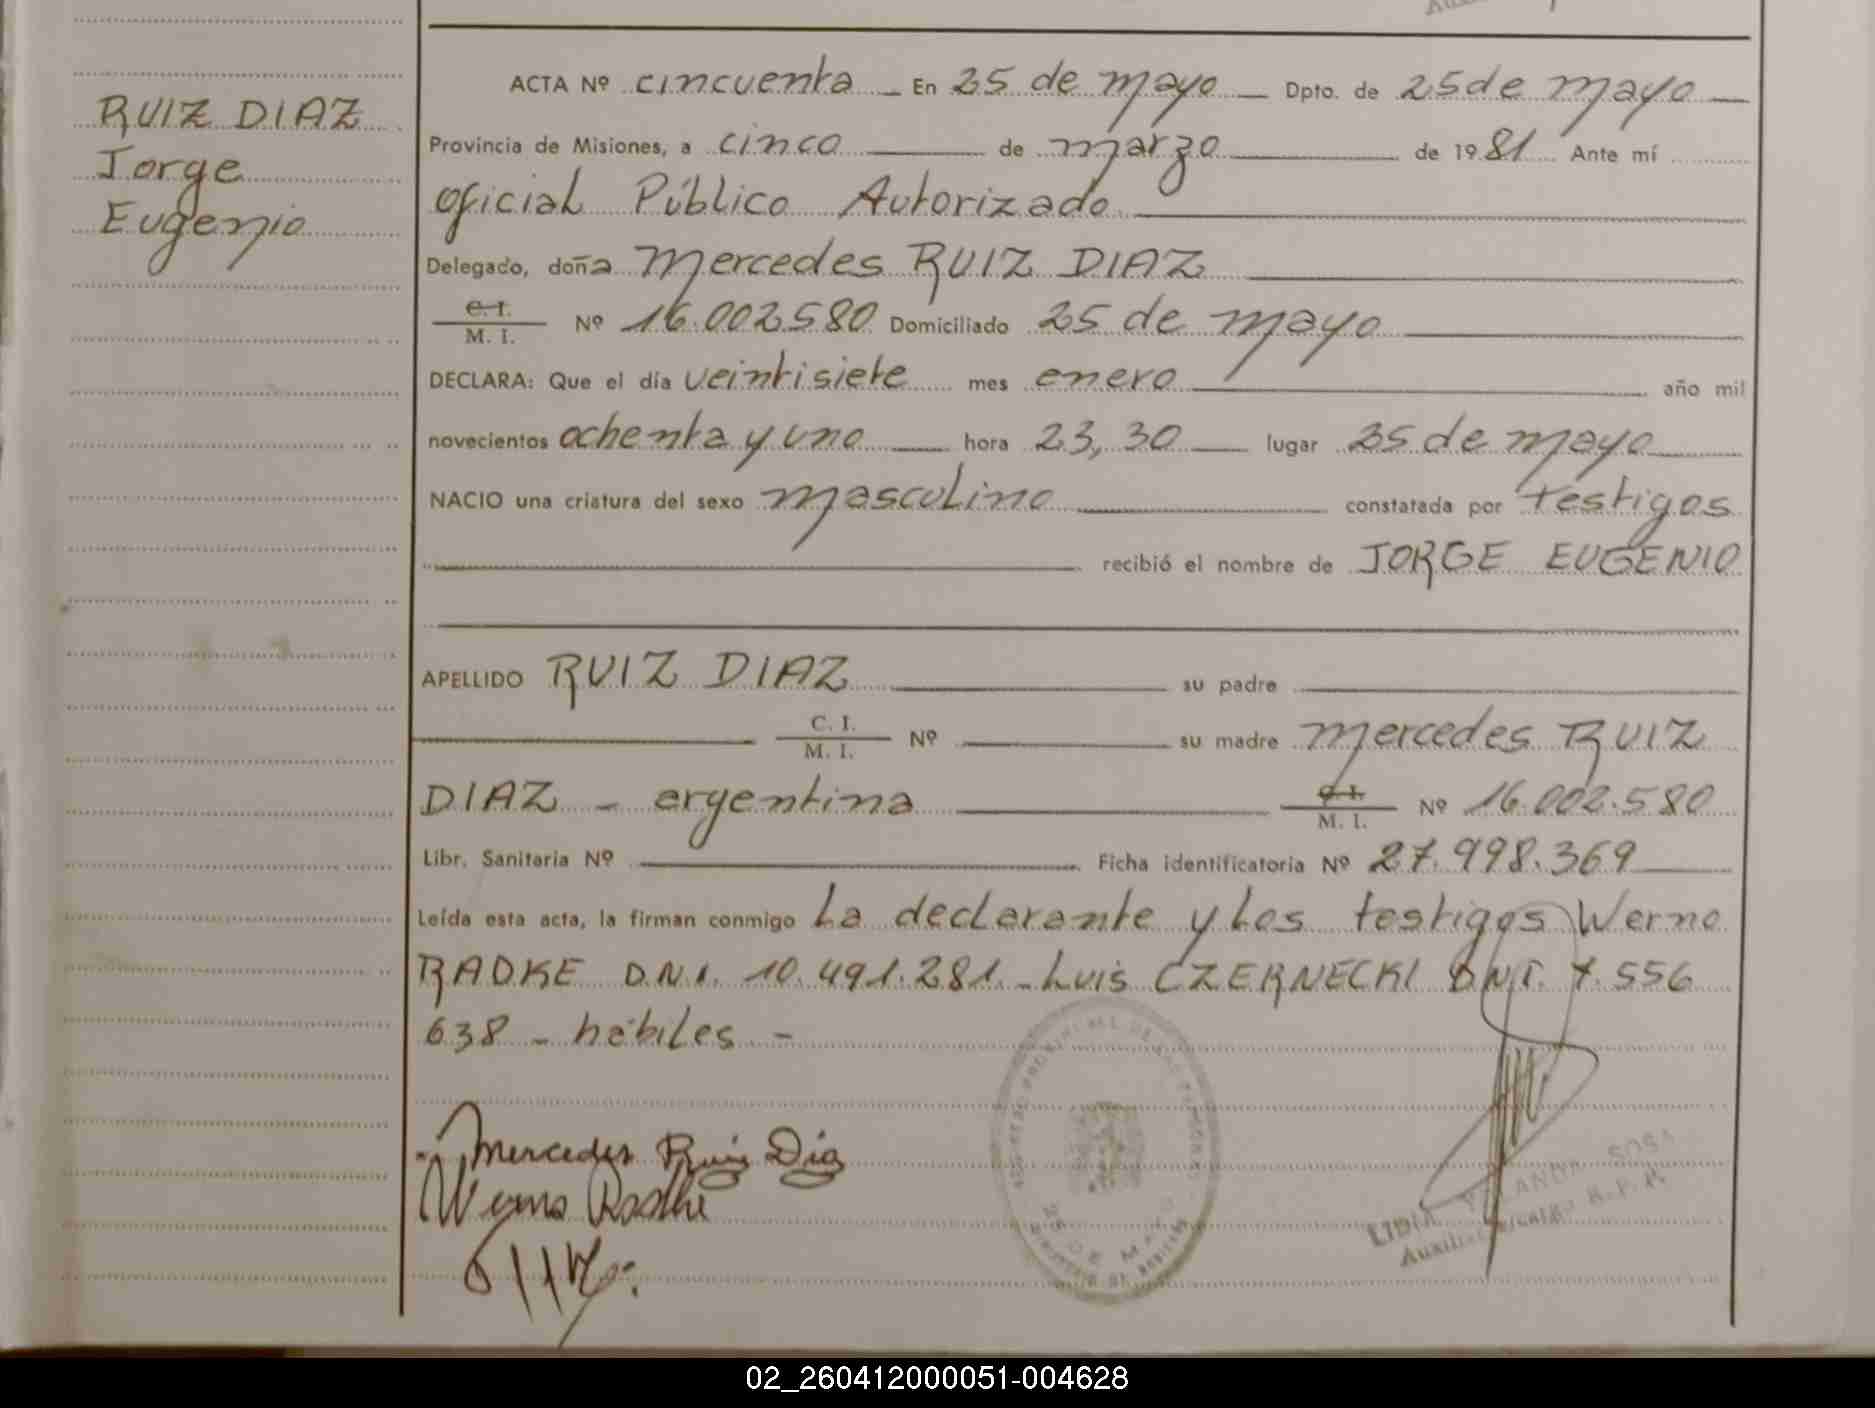 RUIZ DIAZ
Jorge
Eugenio
ACTA Nº cincuenta En 25 de mayo Dpto. de 25 de mayo
Provincia de Misiones, a cinco de marzo de 1981 Ante mí
oficial Público Autorizado
Delegado, doña Mercedes RUIZ DIAZ
C. I.
M. I. Nº 16.002.580 Domiciliado 25 de mayo
DECLARA: Que el día veintisiete mes enero año mil
novecientos ochenta y uno hora 23,30 lugar 25 de mayo
NACIO una criatura del sexo masculino constatada por testigos
recibió el nombre de JORGE EUGENIO
APELLIDO RUIZ DIAZ su padre
C. I.
M. I. Nº su madre Mercedes RUIZ
DIAZ - argentina C. I.
M. I. Nº 16.002.580
Libr. Sanitaria Nº Ficha identificatoria Nº 27.998.369
Leída esta acta, la firman conmigo La declarante y Los testigos Werno
RADKE D.N.I. 10.491.281.- Luis CZERNECKI D.N.I. 7.556
638 - hábiles -
Mercedes Ruiz Diaz
Werno Radke
25 DE MAYO
LIDIA YOLANDA SOSA
02_260412000051-004628